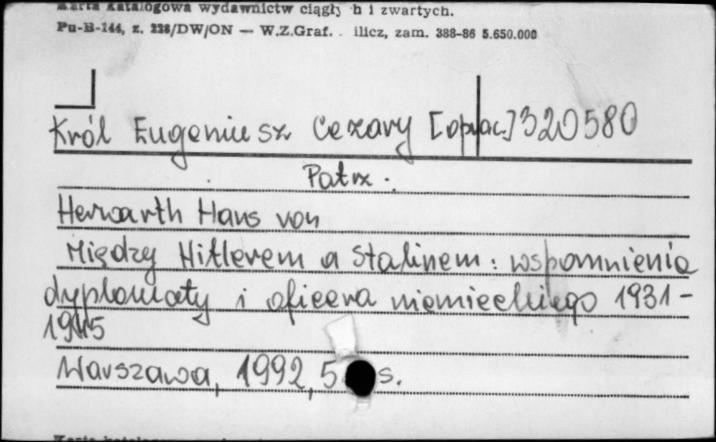 Karta katalogowa wydawnictw ciągły h i zwartych.
Pu-B-144, z. 228/DW/ON — W.Z.Graf. ilicz, zam. 388-86 5.650.000
Król Eugeniusz Cezary [oprac.] 320580
Patrz :
Herwarth Hans von
Między Hitlerem a Stalinem : wspomnienia
dyplomaty i oficera niemieckiego 1931-
1945
Warszawa, 1992, 5 s.